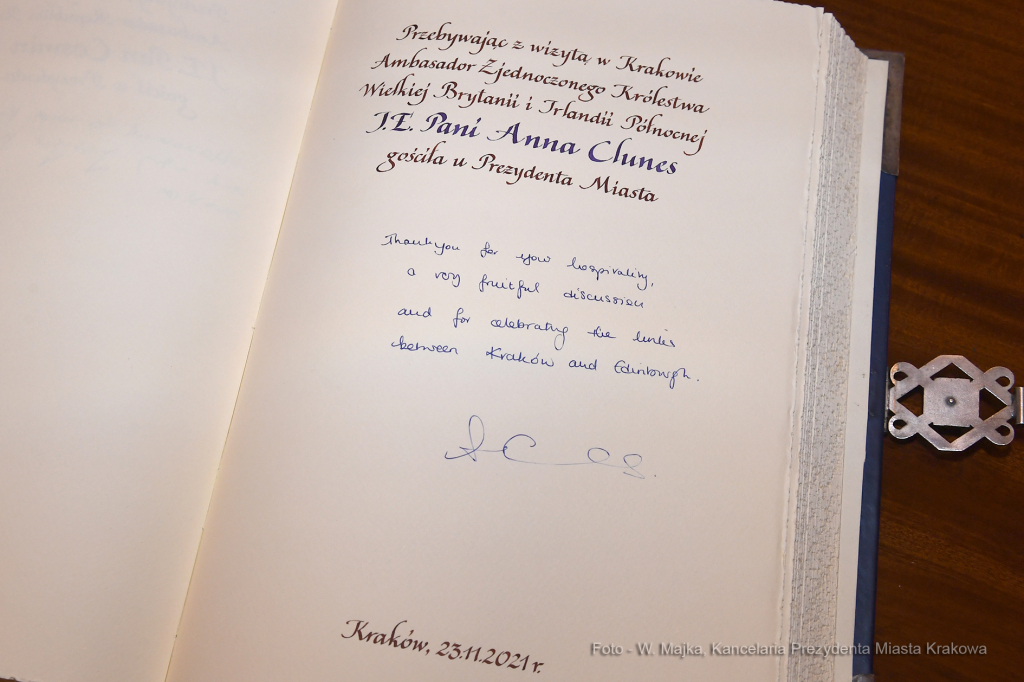 Przebywając z wizytą w Krakowie
Ambasador Zjednoczonego Królestwa
Wielkiej Brytanii i Irlandii Północnej
J.E. Pani Anna Clunes
gościła u Prezydenta Miasta
Thank you for your hospitality,
a very fruitful discussion
and for celebrating the links
between Kraków and Edinburgh.
Kraków, 23.11.2021 r.
Foto - W. Majka, Kancelaria Prezydenta Miasta Krakowa